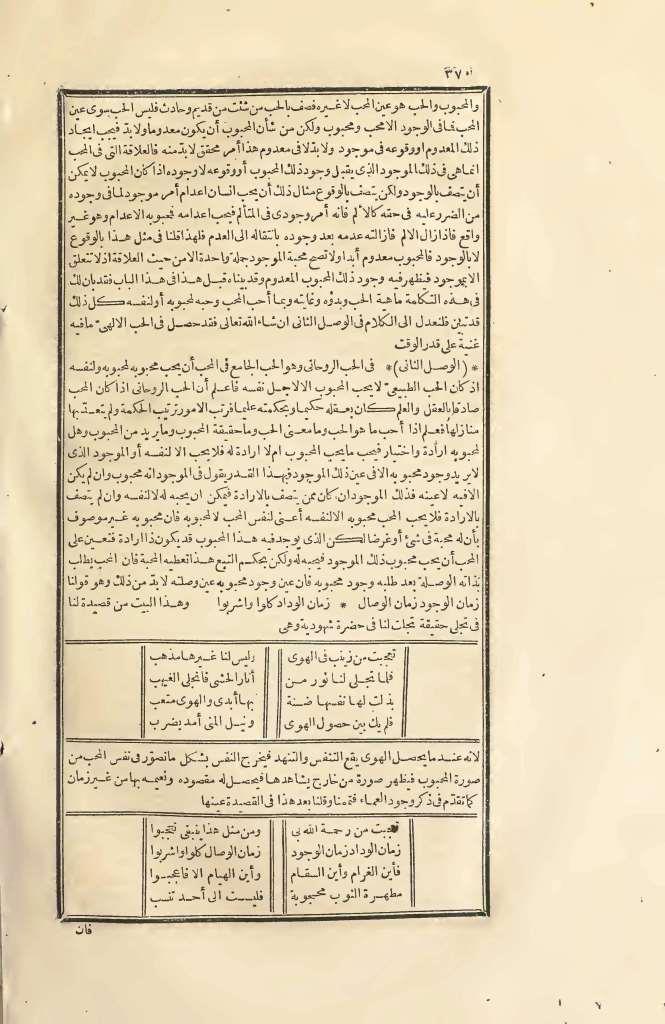 ٣٧٥
والمحبوب والحب هو عين المحب لا غيره فصف بالحب من شئت من قديم وحادث فليس الحب سوى عين
المحب فما فى الوجود الا محب ومحبوب ولكن من شأن المحبوب أن يكون معدوما ولابد فيجب ايجاد
ذلك المعدوم او وقوعه فى موجود ولابد لا فى معدوم هذا أمر محقق لابد منه فالعلاقة التى فى المحب
انما هى فى ذلك الموجود الذى يقبل وجود ذلك المحبوب أو وقوعه لا وجوده اذا كان المحبوب لا يمكن
أن يتصف بالوجود ولكن يتصف بالوقوع مثال ذلك أن يحب انسان اعدام أمر موجود لما فى وجوده
من الضرر عليه فى حقه كالألم فانه أمر وجودى فى المتألم فيحب اعدامه فمحبوبه الاعدام وهو غير
واقع فاذا زال الالم فازالته عدمه بعد وجوده بانتقاله الى العدم فلهذا قلنا فى مثل هذا بالوقوع
لا بالوجود فالمحبوب معدوم أبدا ولا تصح محبة الموجود جملة واحدة الا من حيث العلاقة اذ لا تتعلق
الا بموجود فيظهر فيه وجود ذلك المحبوب المعدوم وقد بيناه قبل هذا فى هذا الباب فقد بان لك
فى هذه التكملة ماهية الحب وبدؤه وغايته وبما أحب المحب وحبه لمحبوبه أو لنفسه كل ذلك
قد تبين فلنعدل الى الكلام فى الوصل الثانى ان شاء الله تعالى فقد حصل فى الحب الالهىّ ما فيه
غنية على قدر الوقت
* (الوصل الثانى) * فى الحب الروحانى وهو الحب الجامع فى المحب أن يحب محبوبه لمحبوبه ولنفسه
اذ كان الحب الطبيعىّ لا يحب المحبوب الا لاجل نفسه فاعلم أن الحب الروحانى اذا كان المحب
صادقا بالعقل والعلم كان بعقله حكيما وبحكمته عليما فرتب الامور ترتيب الحكمة ولم يتعد بها
منازلها فعلم اذا أحب ما هو الحب وما معنى الحب وما حقيقة المحبوب وما يريد من المحبوب وهل
لمحبوبه ارادة واختيار فيحب ما يحب المحبوب ام لا ارادة له فلا يحب الا لنفسه أو الموجود الذى
لا يريد وجود محبوبه الا فى عين ذلك الموجود فبهذا القدر يقول فى الموجود انه محبوب وان لم يكن
الا فيه لا عينه فذلك الموجود ان كان ممن يتصف بالارادة فيمكن ان يحبه له لا لنفسه وان لم يتصف
بالارادة فلا يحب المحب محبوبه الا لنفسه أعنى لنفس المحب لا لمحبوبه فان محبوبه غير موصوف
بأن له محبة فى شئ أو غرضا لكن الذى يوجد فيه هذا المحبوب قد يكون ذا ارادة فتعين على
المحب أن يحب محبوب ذلك الموجود فيحبه له ولكن بحكم التبع هذا تعطيه المحبة فان المحب يطلب
بذاته الوصلة بعد طلبه وجود محبوبه فان عين وجود محبوبه عين وصلته لابد من ذلك وهو قولنا
زمان الوجود زمان الوصال * زمان الوداد كلوا واشربوا وهذا البيت من قصيدة لنا
فى تجلى حقيقة تجلت لنا فى حضرة شهودية وهى
تعجبت من زينب فى الهوى وليس لنا غيرها مذهب
فلما تجلى لنا نور من أنار الحشى فانجلى الغيهب
بذلت لها نفسها ضنة بها أبدى والهوى متعب
فلم يك بين حصول الهوى ونيل المنى أمد يضرب
لانه عند ما يحصل الهوى يقع التنفس والتنهد فيخرج النفس بشكل ما تصوّر فى نفس المحب من
صورة المحبوب فيظهر صورة من خارج يشاهدها فيحصل له مقصوده ونعيمه بها من غير زمان
كما تقدّم فى ذكر وجود العماء فتممنا وقلنا بعد هذا فى القصيدة عينها
تعجبت من رحمة الله بى ومن مثل هذا ينبغى تعجبوا
زمان الوداد زمان الوجود زمان الوصال كلوا واشربوا
فأين الغرام وأين السقام وأين الهيام الا فاعجبوا
مطهرة الثوب محجوبة فليست الى أحد تنسب
فان